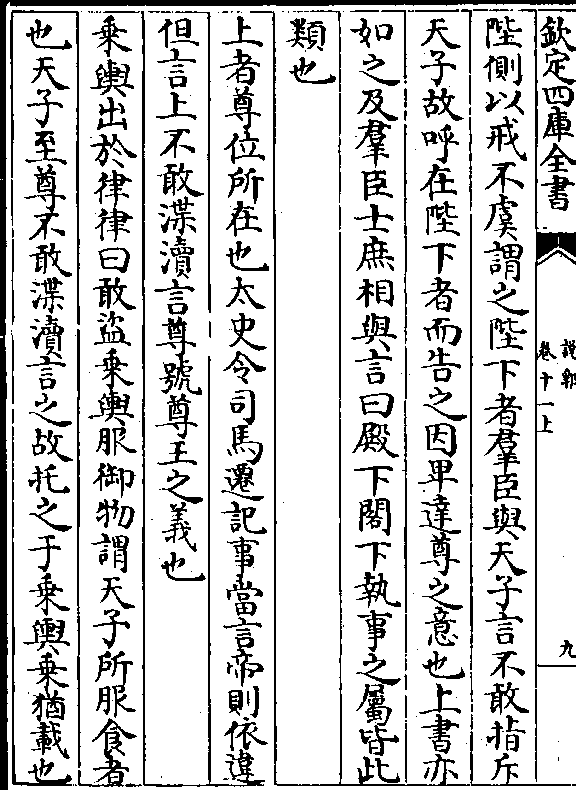 欽定四庫全書
說郛
卷十一上
九
陛側以戒不虞謂之陛下者羣臣與天子言不敢指斥
天子故呼在陛下者而告之因卑達尊之意也上書亦
如之及羣臣士庶相與言曰殿下閣下執事之屬皆此
類也
上者尊位所在也太史令司馬遷記事當言帝則依違
但言上不敢渫瀆言尊號尊王之義也
乘輿出於律律曰敢盜乘輿服御物謂天子所服食者
也天子至尊不敢渫瀆言之故托之于乘輿乘猶載也